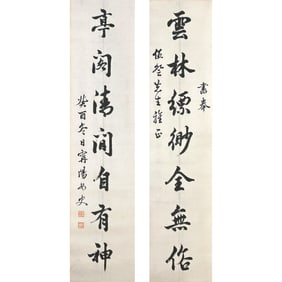 書奉
雲林縹緲全無俗
先生雅正
亭閣清閒自有神
癸酉冬日